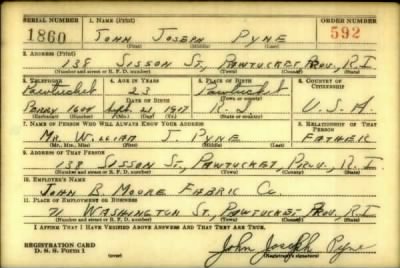 SERIAL NUMBER 1. NAME (Print) ORDER NUMBER
1860 JOHN JOSEPH PYNE 592
(First) (Middle) (Last)
2. ADDRESS (Print)
138 SISSON ST, PAWTUCKET, PROV., R.I.
(Number and street or R. F. D. number) (Town) (County) (State)
3. TELEPHONE 4. AGE IN YEARS 5. PLACE OF BIRTH 6. COUNTRY OF CITIZENSHIP
Pawtucket 23 Pawtucket
DATE OF BIRTH (Town or county)
Perry 1604 Sept. 21, 1917 R. I. U. S. A.
(Exchange) (Number) (Mo.) (Day) (Yr.) (State or country)
7. NAME OF PERSON WHO WILL ALWAYS KNOW YOUR ADDRESS 8. RELATIONSHIP OF THAT PERSON
MR. WILLIAM J. PYNE FATHER
(Mr., Mrs., Miss) (First) (Middle) (Last)
9. ADDRESS OF THAT PERSON
138 SISSON ST., PAWTUCKET, PROV., R.I.
(Number and street or R. F. D. number) (Town) (County) (State)
10. EMPLOYER'S NAME
JOHN B. MOORE FABRIC CO
11. PLACE OF EMPLOYMENT OR BUSINESS
71 WASHINGTON ST, PAWTUCKET PROV. R.I.
(Number and street or R. F. D. number) (Town) (County) (State)
I AFFIRM THAT I HAVE VERIFIED ABOVE ANSWERS AND THAT THEY ARE TRUE.
REGISTRATION CARD
D. S. S. Form 1
John Joseph Pyne
(Registrant's signature)